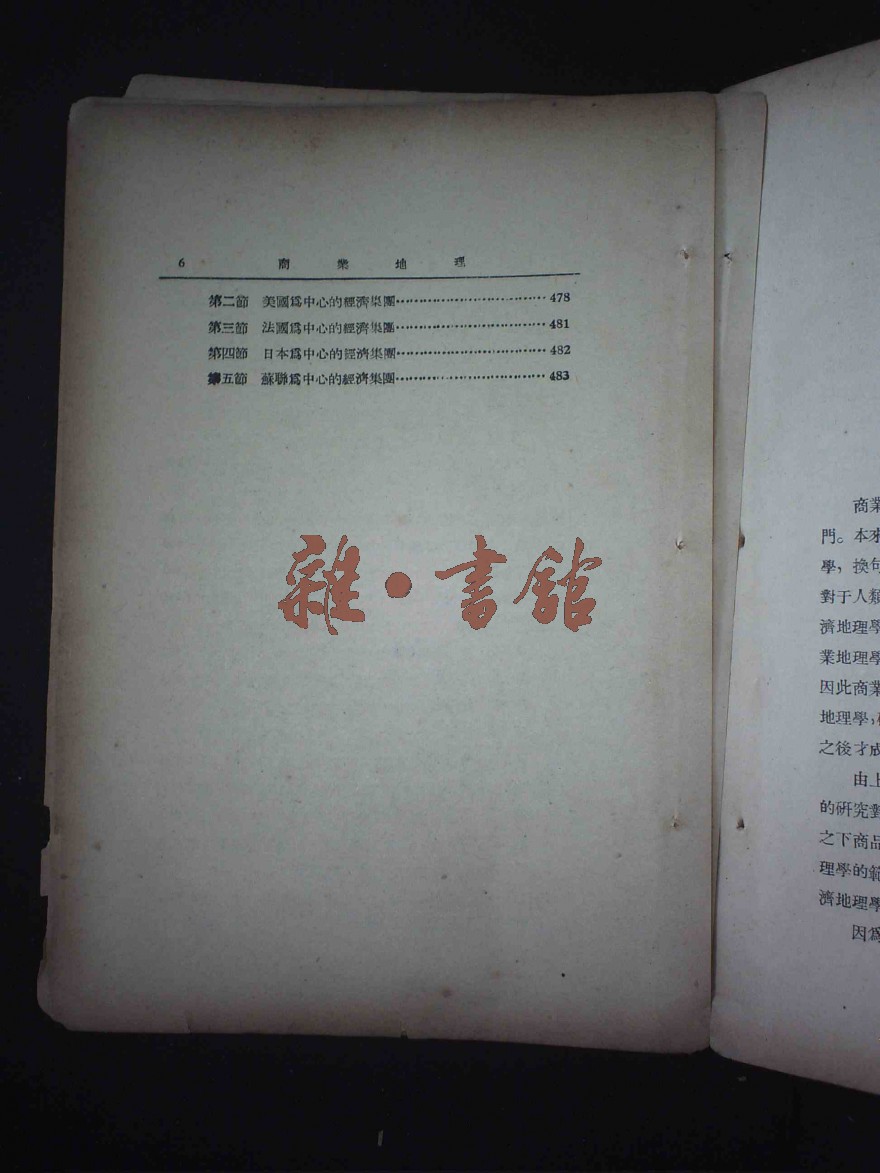 6 商業地理
第二節 美國爲中心的經濟集團……………………………478
第三節 法國爲中心的經濟集團……………………………481
第四節 日本爲中心的經濟集團……………………………482
第五節 蘇聯爲中心的經濟集團……………………………483
雜·書館
商業
門。本來
學，換句
對于人類
濟地理學
業地理學
因此商業
地理學，
之後才成
由上
的研究對
之下商品
理學的範
濟地理學
因爲